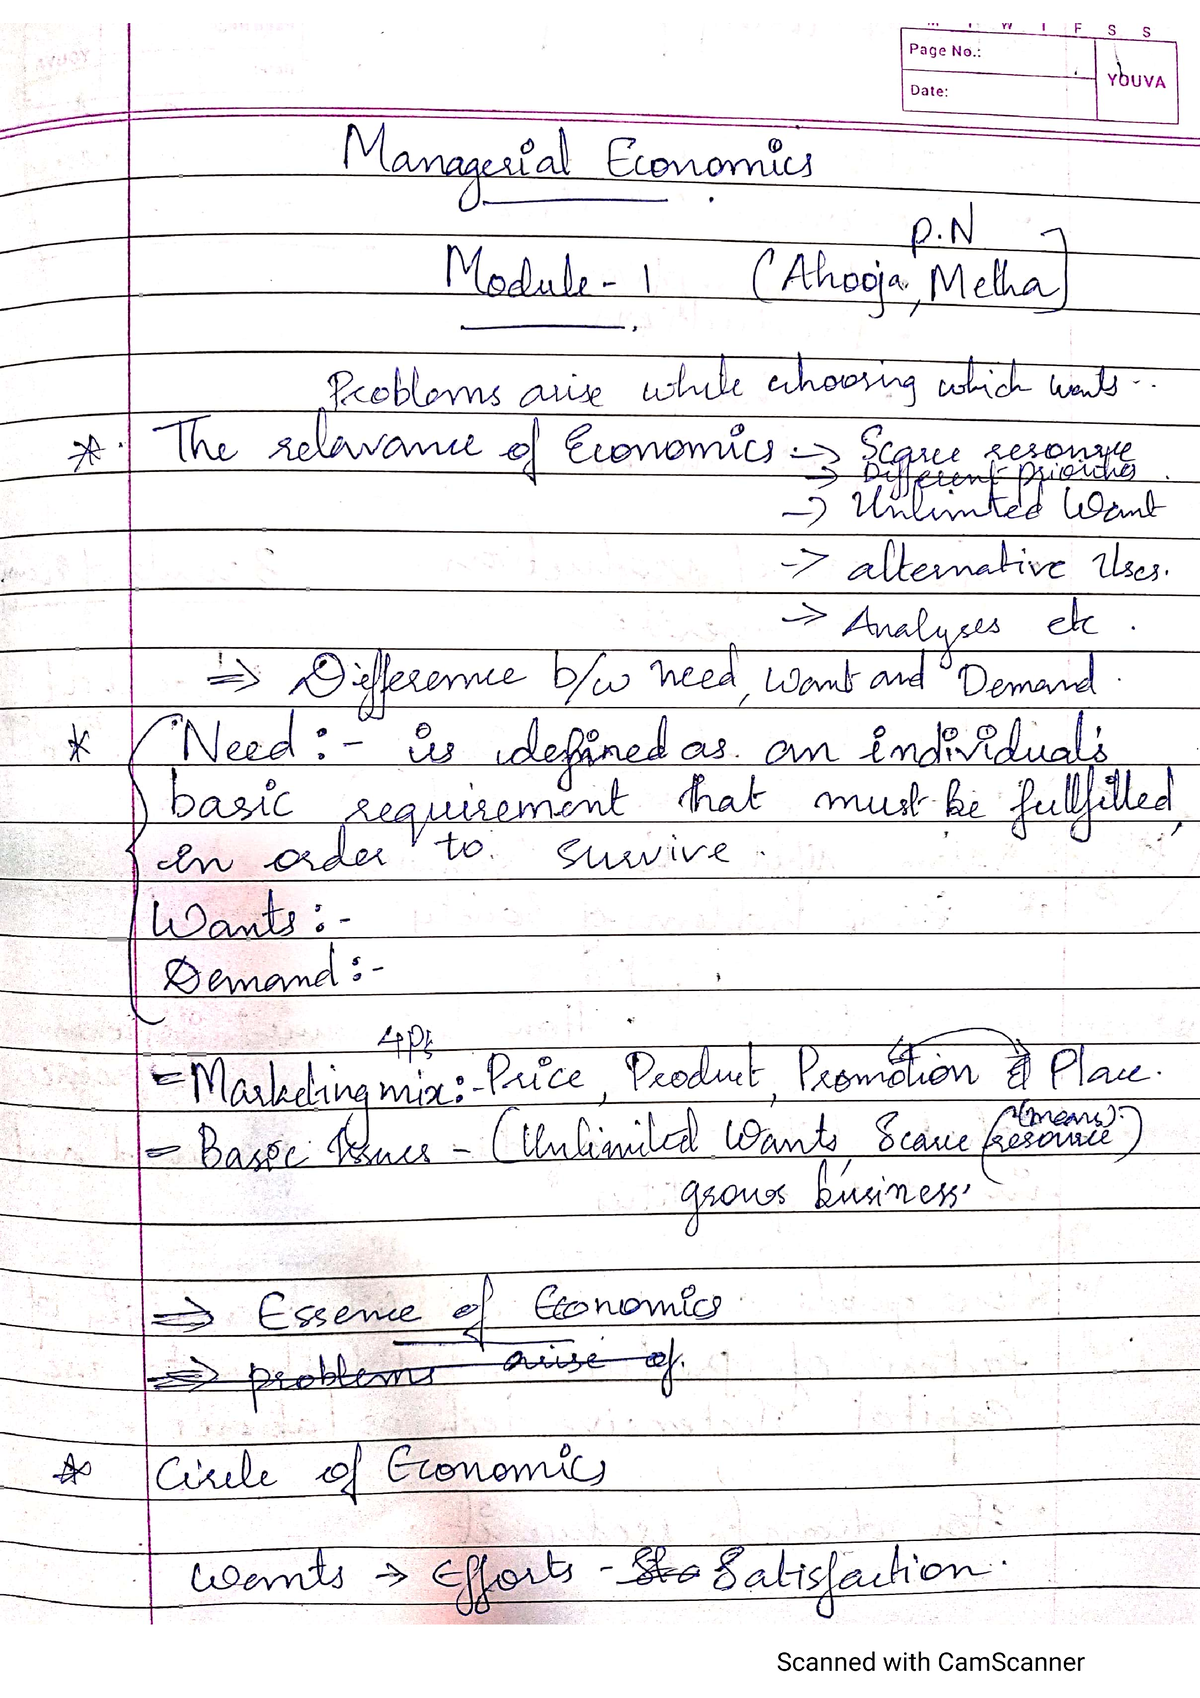 M T W T F S S
Page No.:
YOUVA
Date:
Managerial Economics
P.N
Module - 1 (Ahooja, Metha]
Problems arise while choosing which wants..
* The relavance of Economics :→ Scarce resource
→ Different priorities
→ Unlimited Want
→ alternative Uses.
→ Analyses etc.
⇒ Difference b/w need, want and Demand.
* Need :- is defined as an individual's
basic requirement that must be fullfilled,
in order to survive.
Wants :-
Demand :-
4P's
= Marketing mix :- Price, Product, Promotion & Place.
(means)
= Basic Issues - (Unlimited Wants, Scarce resource)
grows business.
⇒ Essence of Economics
⇒ problems arise of.
* Circle of Economics
Wants → Efforts - Satisfaction.
Scanned with CamScanner